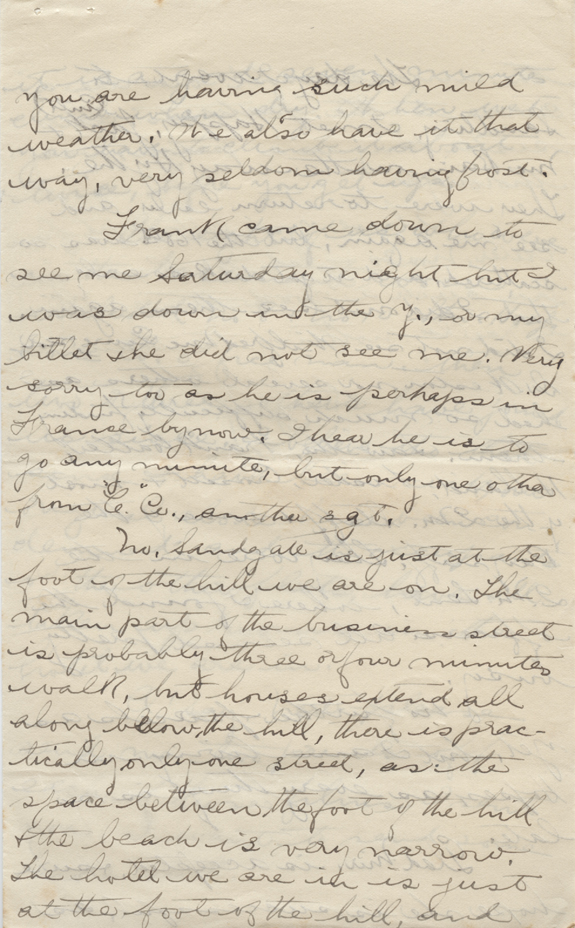 you are having such mild
weather. We also have it that
way, very seldom having frost.
Frank came down to
see me Saturday night but I
was down in the Y., or my
billet & he did not see me. Very
sorry too as he is perhaps in
France by now. I hear he is to
go any minute, but only one other
from "C." Co., another sgt.
No, Sandgate is just at the
foot of the hill we are on. The
main part of the business street
is probably three or four minutes
walk, but houses extend all
along below the hill, there is prac-
tically only one street, as the
space between the foot of the hill
& the beach is very narrow.
The hotel we are in is just
at the foot of the hill, and